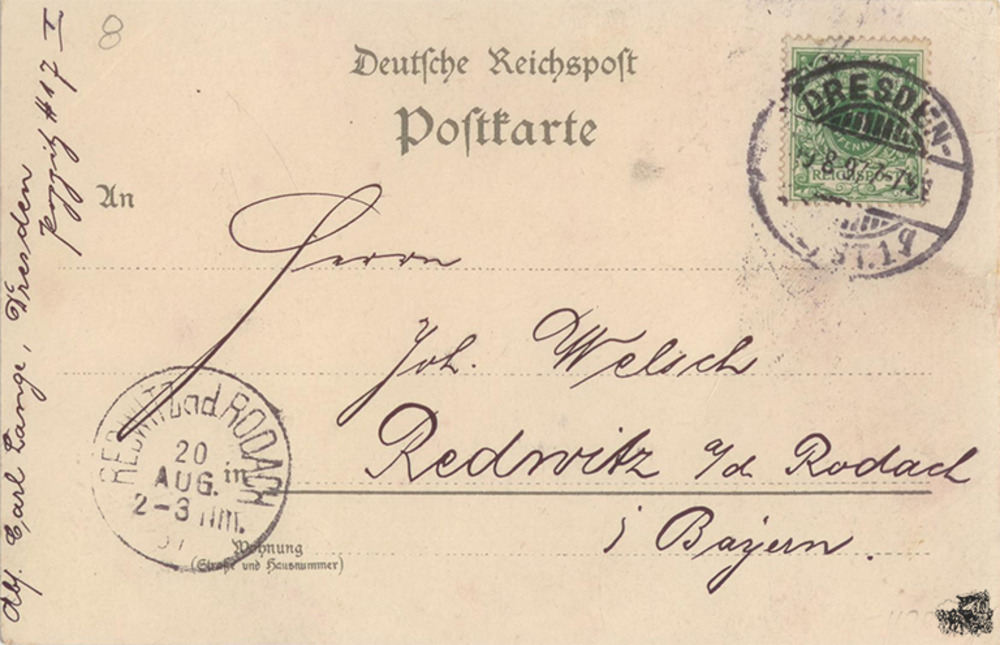 8
Deutsche Reichspost
Postkarte
An
Herrn
Joh. Welsch
Redwitz a/d Rodach
i Bayern.
Wohnung
(Straße und Hausnummer)
Abs. Carl Lange, Dresden
#17 I
DRESDEN-
REICHSPOST
REDWITZ a.d. RODACH
20
AUG. in
2-3 Nm.